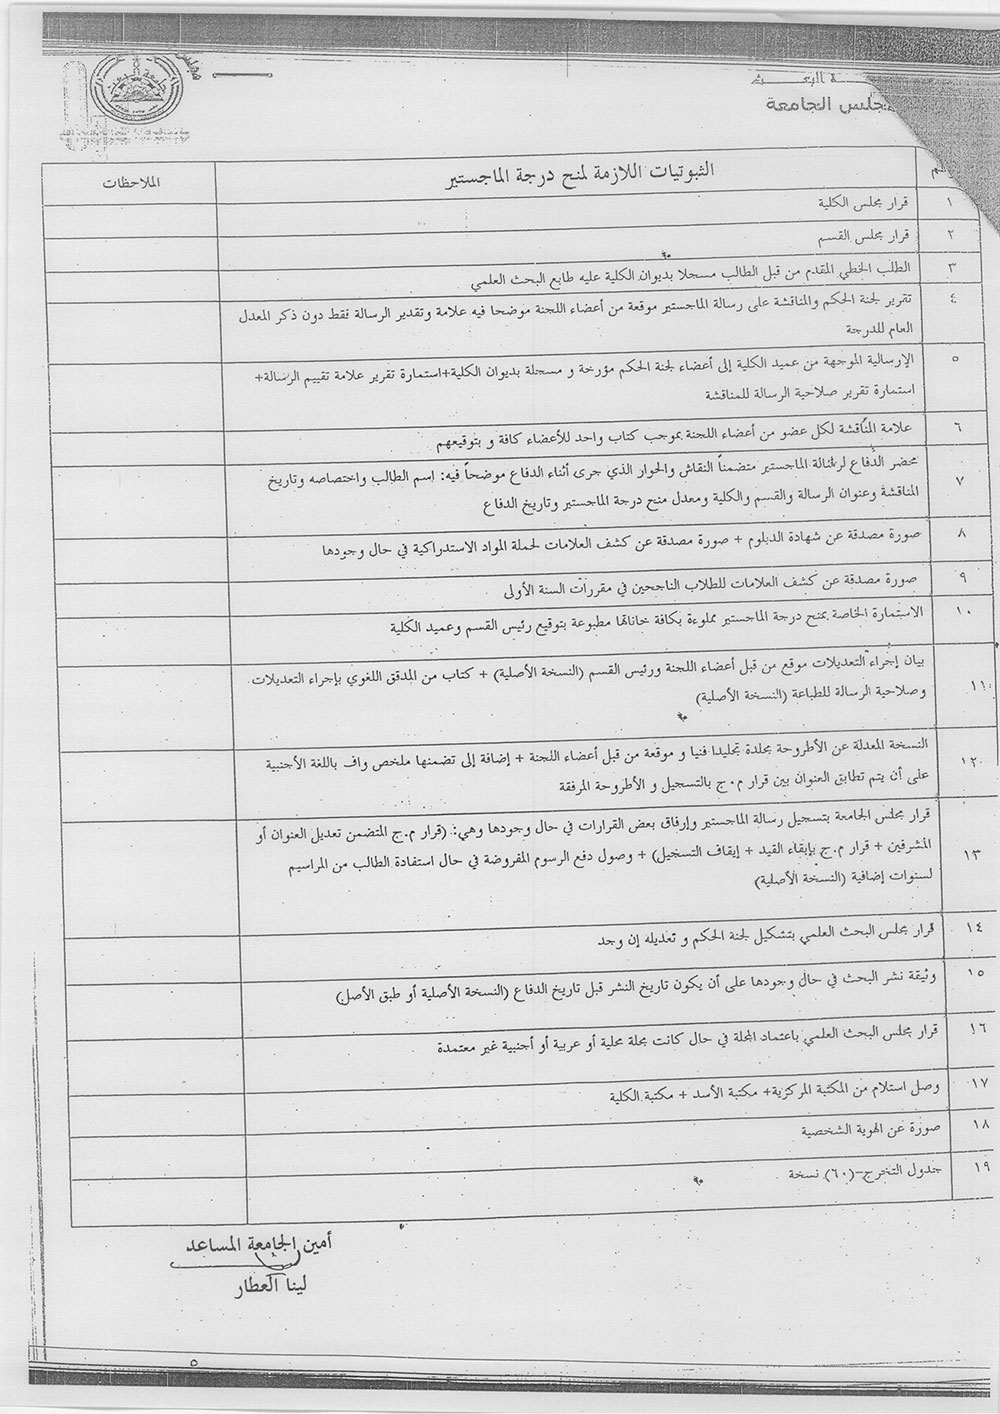 مجلس الجامعة
الثبوتيات اللازمة لمنح درجة الماجستير
الملاحظات
١ قرار مجلس الكلية
٢ قرار مجلس القسم
٣ الطلب الخطي المقدم من قبل الطالب مسجلا بديوان الكلية عليه طابع البحث العلمي
٤ تقرير لجنة الحكم والمناقشة على رسالة الماجستير موقعة من أعضاء اللجنة موضحا فيه علامة وتقدير الرسالة فقط دون ذكر المعدل
العام للدرجة
٥ الإرسالية الموجهة من عميد الكلية إلى أعضاء لجنة الحكم مؤرخة و مسجلة بديوان الكلية+استمارة تقرير علامة تقييم الرسالة+
استمارة تقرير صلاحية الرسالة للمناقشة
٦ علامة المناقشة لكل عضو من أعضاء اللجنة بموجب كتاب واحد للأعضاء كافة و بتوقيعهم
٧ محضر الدفاع لرسالة الماجستير متضمناً النقاش والحوار الذي جرى أثناء الدفاع موضحاً فيه: اسم الطالب واختصاصه وتاريخ
المناقشة وعنوان الرسالة والقسم والكلية ومعدل منح درجة الماجستير وتاريخ الدفاع
٨ صورة مصدقة عن شهادة الدبلوم + صورة مصدقة عن كشف العلامات لحملة المواد الاستدراكية في حال وجودها
٩ صورة مصدقة عن كشف العلامات للطلاب الناجحين في مقررات السنة الأولى
١٠ الاستمارة الخاصة بمنح درجة الماجستير مملوءة بكافة خاناتها مطبوعة بتوقيع رئيس القسم وعميد الكلية
١١ بيان إجراء التعديلات موقع من قبل أعضاء اللجنة ورئيس القسم (النسخة الأصلية) + كتاب من المدقق اللغوي بإجراء التعديلات
وصلاحية الرسالة للطباعة (النسخة الأصلية)
١٢ النسخة المعدلة عن الأطروحة مجلدة تجليدا فنيا و موقعة من قبل أعضاء اللجنة + إضافة إلى تضمنها ملخص واف باللغة الأجنبية
على أن يتم تطابق العنوان بين قرار م.ج بالتسجيل و الأطروحة المرفقة
١٣ قرار مجلس الجامعة بتسجيل رسالة الماجستير وإرفاق بعض القرارات في حال وجودها وهي: (قرار م.ج المتضمن تعديل العنوان أو
المشرفين + قرار م.ج بإبقاء القيد + إيقاف التسجيل) + وصول دفع الرسوم المفروضة في حال استفادة الطالب من المراسيم
لسنوات إضافية (النسخة الأصلية)
١٤ قرار مجلس البحث العلمي بتشكيل لجنة الحكم و تعديله إن وجد
١٥ وثيقة نشر البحث في حال وجودها على أن يكون تاريخ النشر قبل تاريخ الدفاع (النسخة الأصلية أو طبق الأصل)
١٦ قرار مجلس البحث العلمي باعتماد المجلة في حال كانت مجلة محلية أو عربية أو أجنبية غير معتمدة
١٧ وصل استلام من المكتبة المركزية+ مكتبة الأسد + مكتبة الكلية
١٨ صورة عن الهوية الشخصية
١٩ جدول التخرج-(٦٠) نسخة
أمين الجامعة المساعد
لينا العطار
٥